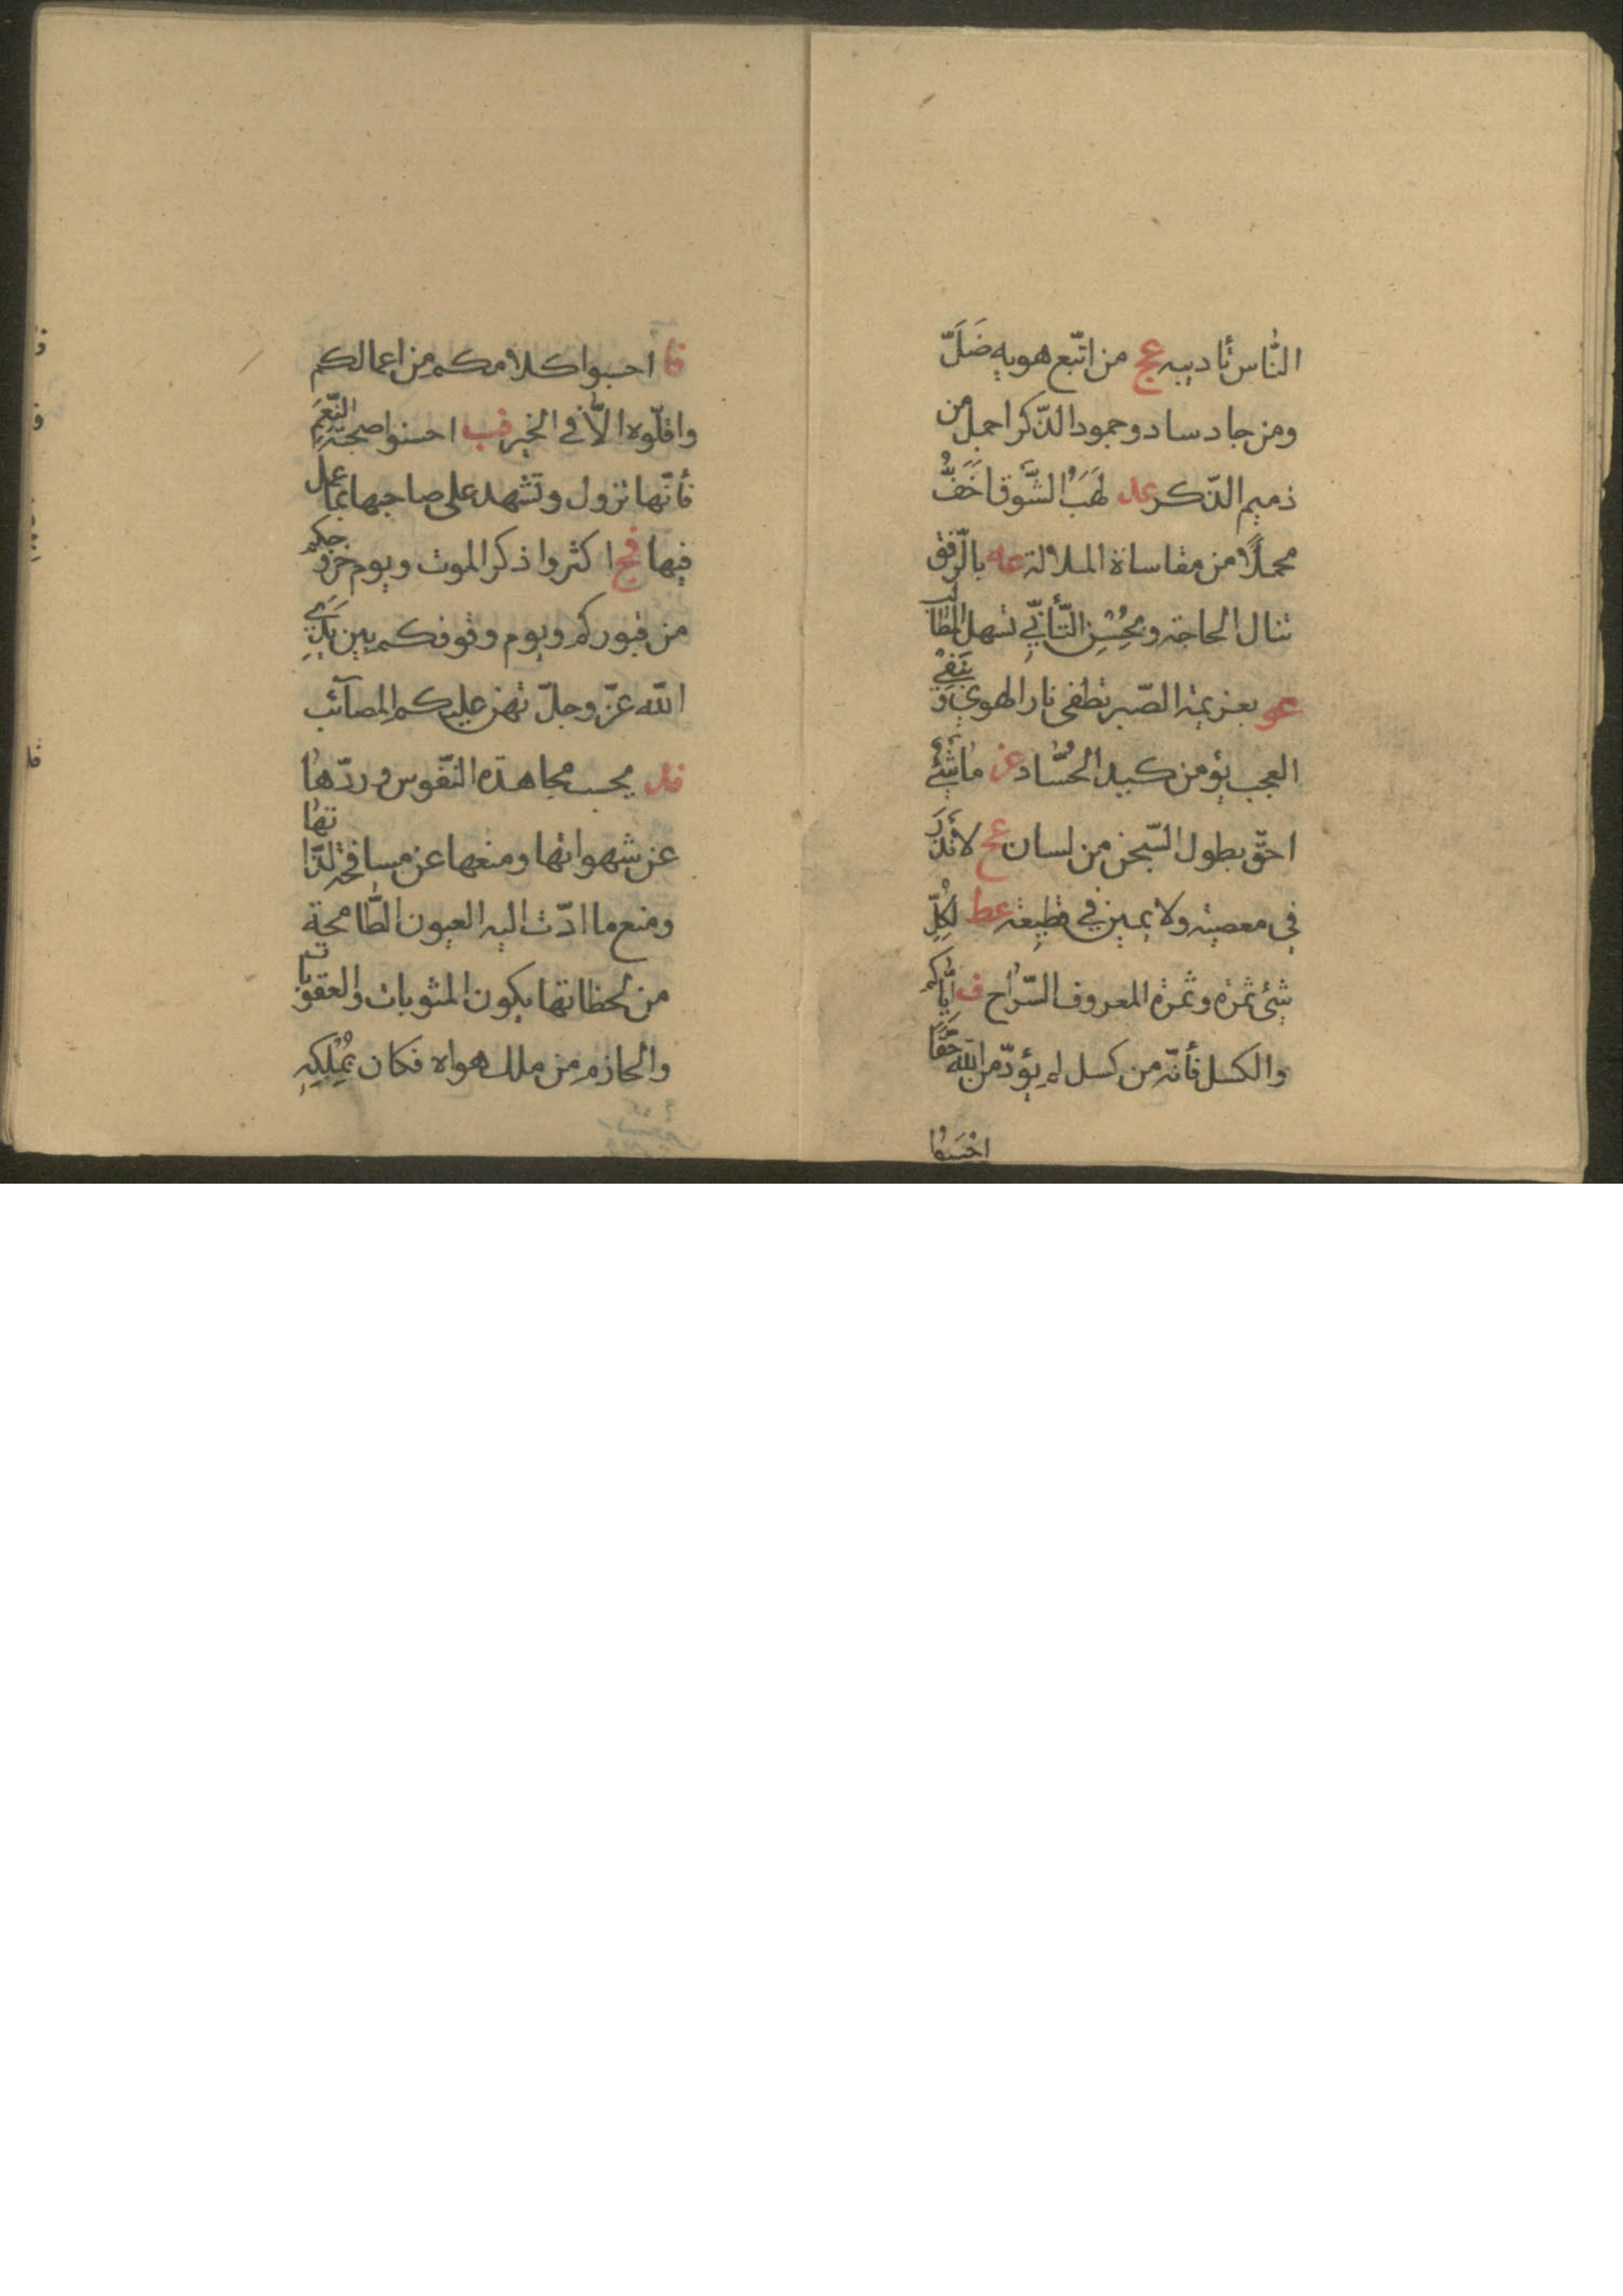 النّاس تأديبه عج من اتّبع هويه ضَلَّ
ومن جاد ساد وجمود الذّكر اجمل من
ذميم الذّكر عد لهَبُ الشَّوق اَخَفُّ
محملًا من مقاساة الملالة عه بالرّفق
تنال الحاجة وبحُسْنِ التّأنّي تسهل المطالب
عو بعزيمة الصّبر تطفى نار الهوي وَبنَفْيِ
العجب يؤمن كيد الحُسّاد عز ما شَيْئٌ
احقّ بطول السّجن من لسان عح لا نَذْرَ
في معصية ولا يمين في قطيعة عط لِكُلِّ
شئ ثمرة وثمرة المعروف السّراح ف ايّاكم
والكسل فأنّه من كسل لم يؤدّ من اللّه حَقًّا
احْسَبُوا
فا احسبوا كلامكم من اعمالكم
واقلّوه الّا في الخير فب احسنوا صحبة النِّعَمِ
فأنّها تزول وتشهد على صاحبها بما عمل
فيها فج اكثروا ذكر الموت ويوم خروجكم
من قبوركم ويوم وقوفكم بين يَدَيِ
اللّه عزّ وجلّ تهن عليكم المصآئب
فد بحسب مجاهدة النّفوس وردّها
عن شهواتها ومنعها عن مسافحة لذّاتها
ومنع ما ادّت اليه العيون الطّامحة
من لحظاتها يكون المثوبات والعقوبات
والحازم من ملك هواه فكان بمُلْكِهِ